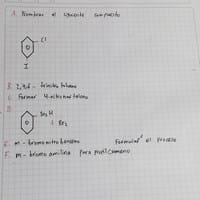 A. Nombrar el siguiente compuesto
Cl
I
B. 2,4,6 - trinitro tolueno
C. Formar 4-nitro metatolueno
D.
SO3 H
+ Br2
E. m - bromo nitro benceno Formular el proceso
F. m - bromo anilina para